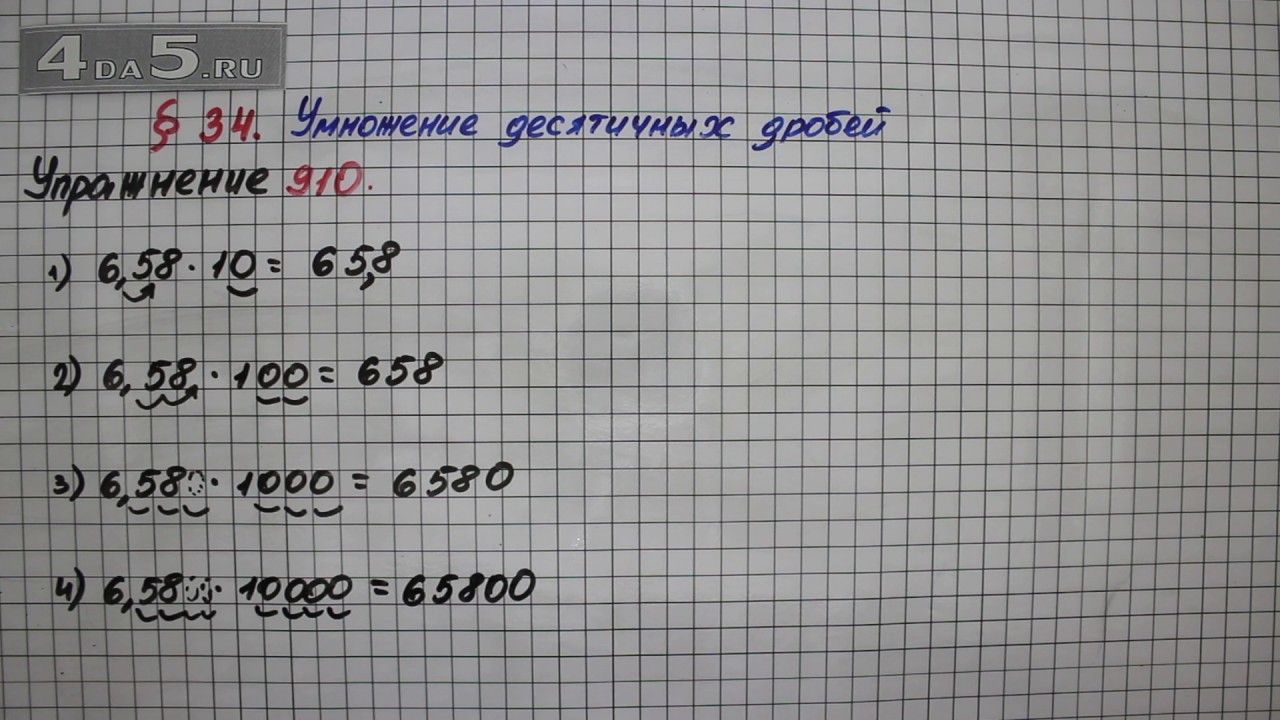 4DA5.RU
§ 34. Умножение десятичных дробей
Упражнение 910.
1) 6,58 · 10 = 65,8
2) 6,58 · 100 = 658
3) 6,580 · 1000 = 6580
4) 6,5800 · 10000 = 65800